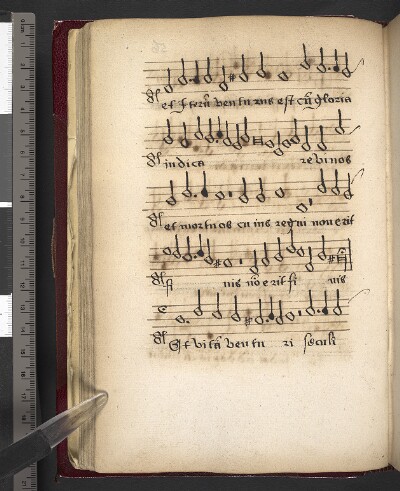 et Iterū ventu rus est cū gloria
iudica re vivos
et mortuos cu ius regni non erit
fi nis nō erit fi nis
Et vitā ventu ri seculi